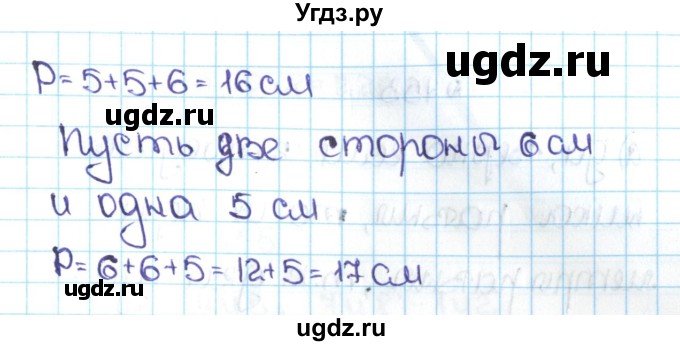 Угдз.ру
ugdz.ru
P = 5 + 5 + 6 = 16 см
ugdz.ru
Пусть две стороны 6 см
и одна 5 см.
ugdz.ru
ugdz.ru
P = 6 + 6 + 5 = 12 + 5 = 17 см
ugdz.ru
ugdz.ru